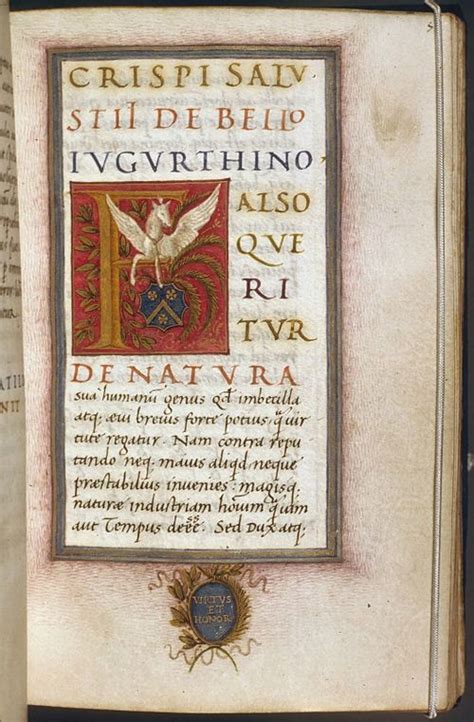 CRISPI SALV
STII DE BELLO
IVGVRTHINO
F ALSO
QVE
RI
TVR
DE NATVRA
sua humanū genus qd imbecilla
atq, ævi brevis forte potius, quā vir
tute regatur. Nam contra repu
tando neq, maius aliqd neque
præstabilius invenies: magisq,
naturæ industriam houm quam
aut Tempus deēē. Sed Dux atq,
VIRTVS
ET
HONOR
ATIL
NIT